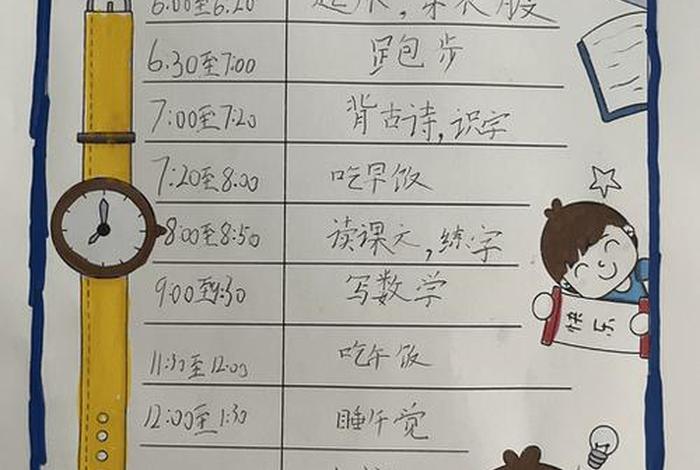 6:00至6:20 起床,穿衣服
6:30至7:00 跑步
7:00至7:20 背古诗,识字
7:20至8:00 吃早饭
8:00至8:50 读课文,练字
9:00至9:30 写数学
11:30至12:00 吃午饭
12:00至1:30 睡午觉
快乐